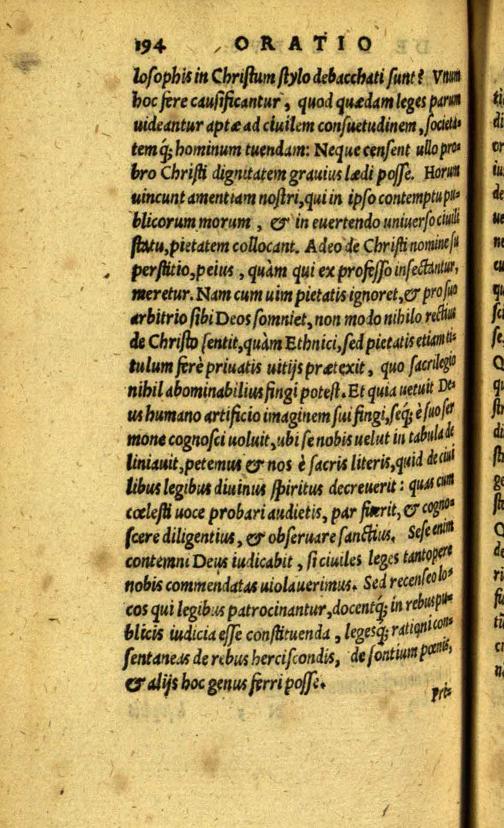 194 ORATIO
losophis in Christum stylo debacchati sunt? Vnum
hoc fere causificantur, quod quædam leges parum
uideantur aptæ ad ciuilem consuetudinem, societa-
temq́; hominum tuendam: Neque censent ullo pro-
bro Christi dignitatem grauius lædi posse. Horum
uincunt amentiam nostri, qui in ipso contemptu pu-
blicorum morum, & in euertendo uniuerso ciuili
statu, pietatem collocant. Adeo de Christi nomine su
perstitio, peius, quàm qui ex professo insectantur,
meretur. Nam cum uim pietatis ignoret, & pro suo
arbitrio sibi Deos somniet, non modo nihilo rectius
de Christo sentit, quàm Ethnici, sed pietatis etiam ti-
tulum ferè priuatis uitijs prætexit, quo sacrilegio
nihil abominabilius fingi potest. Et quia uetuit De-
us humano artificio imaginem sui fingi, seq́; è suo ser
mone cognosci uoluit, ubi se nobis uelut in tabula de
liniauit, petemus & nos è sacris literis, quid de ciui
libus legibus diuinus spiritus decreuerit: quas cum
cœlesti uoce probari audietis, par fuerit, & cogno-
scere diligentius, & obseruare sanctius. Sese enim
contemni Deus iudicabit, si ciuiles leges tantopere
nobis commendatas uiolauerimus. Sed recenseo lo-
cos qui legibus patrocinantur, docentq́; in rebus pu-
blicis iudicia esse constituenda, legesq́; rationi con-
sentaneas de rebus herciscondis, de sontium pœnis,
& alijs hoc genus ferri posse.
Pri-